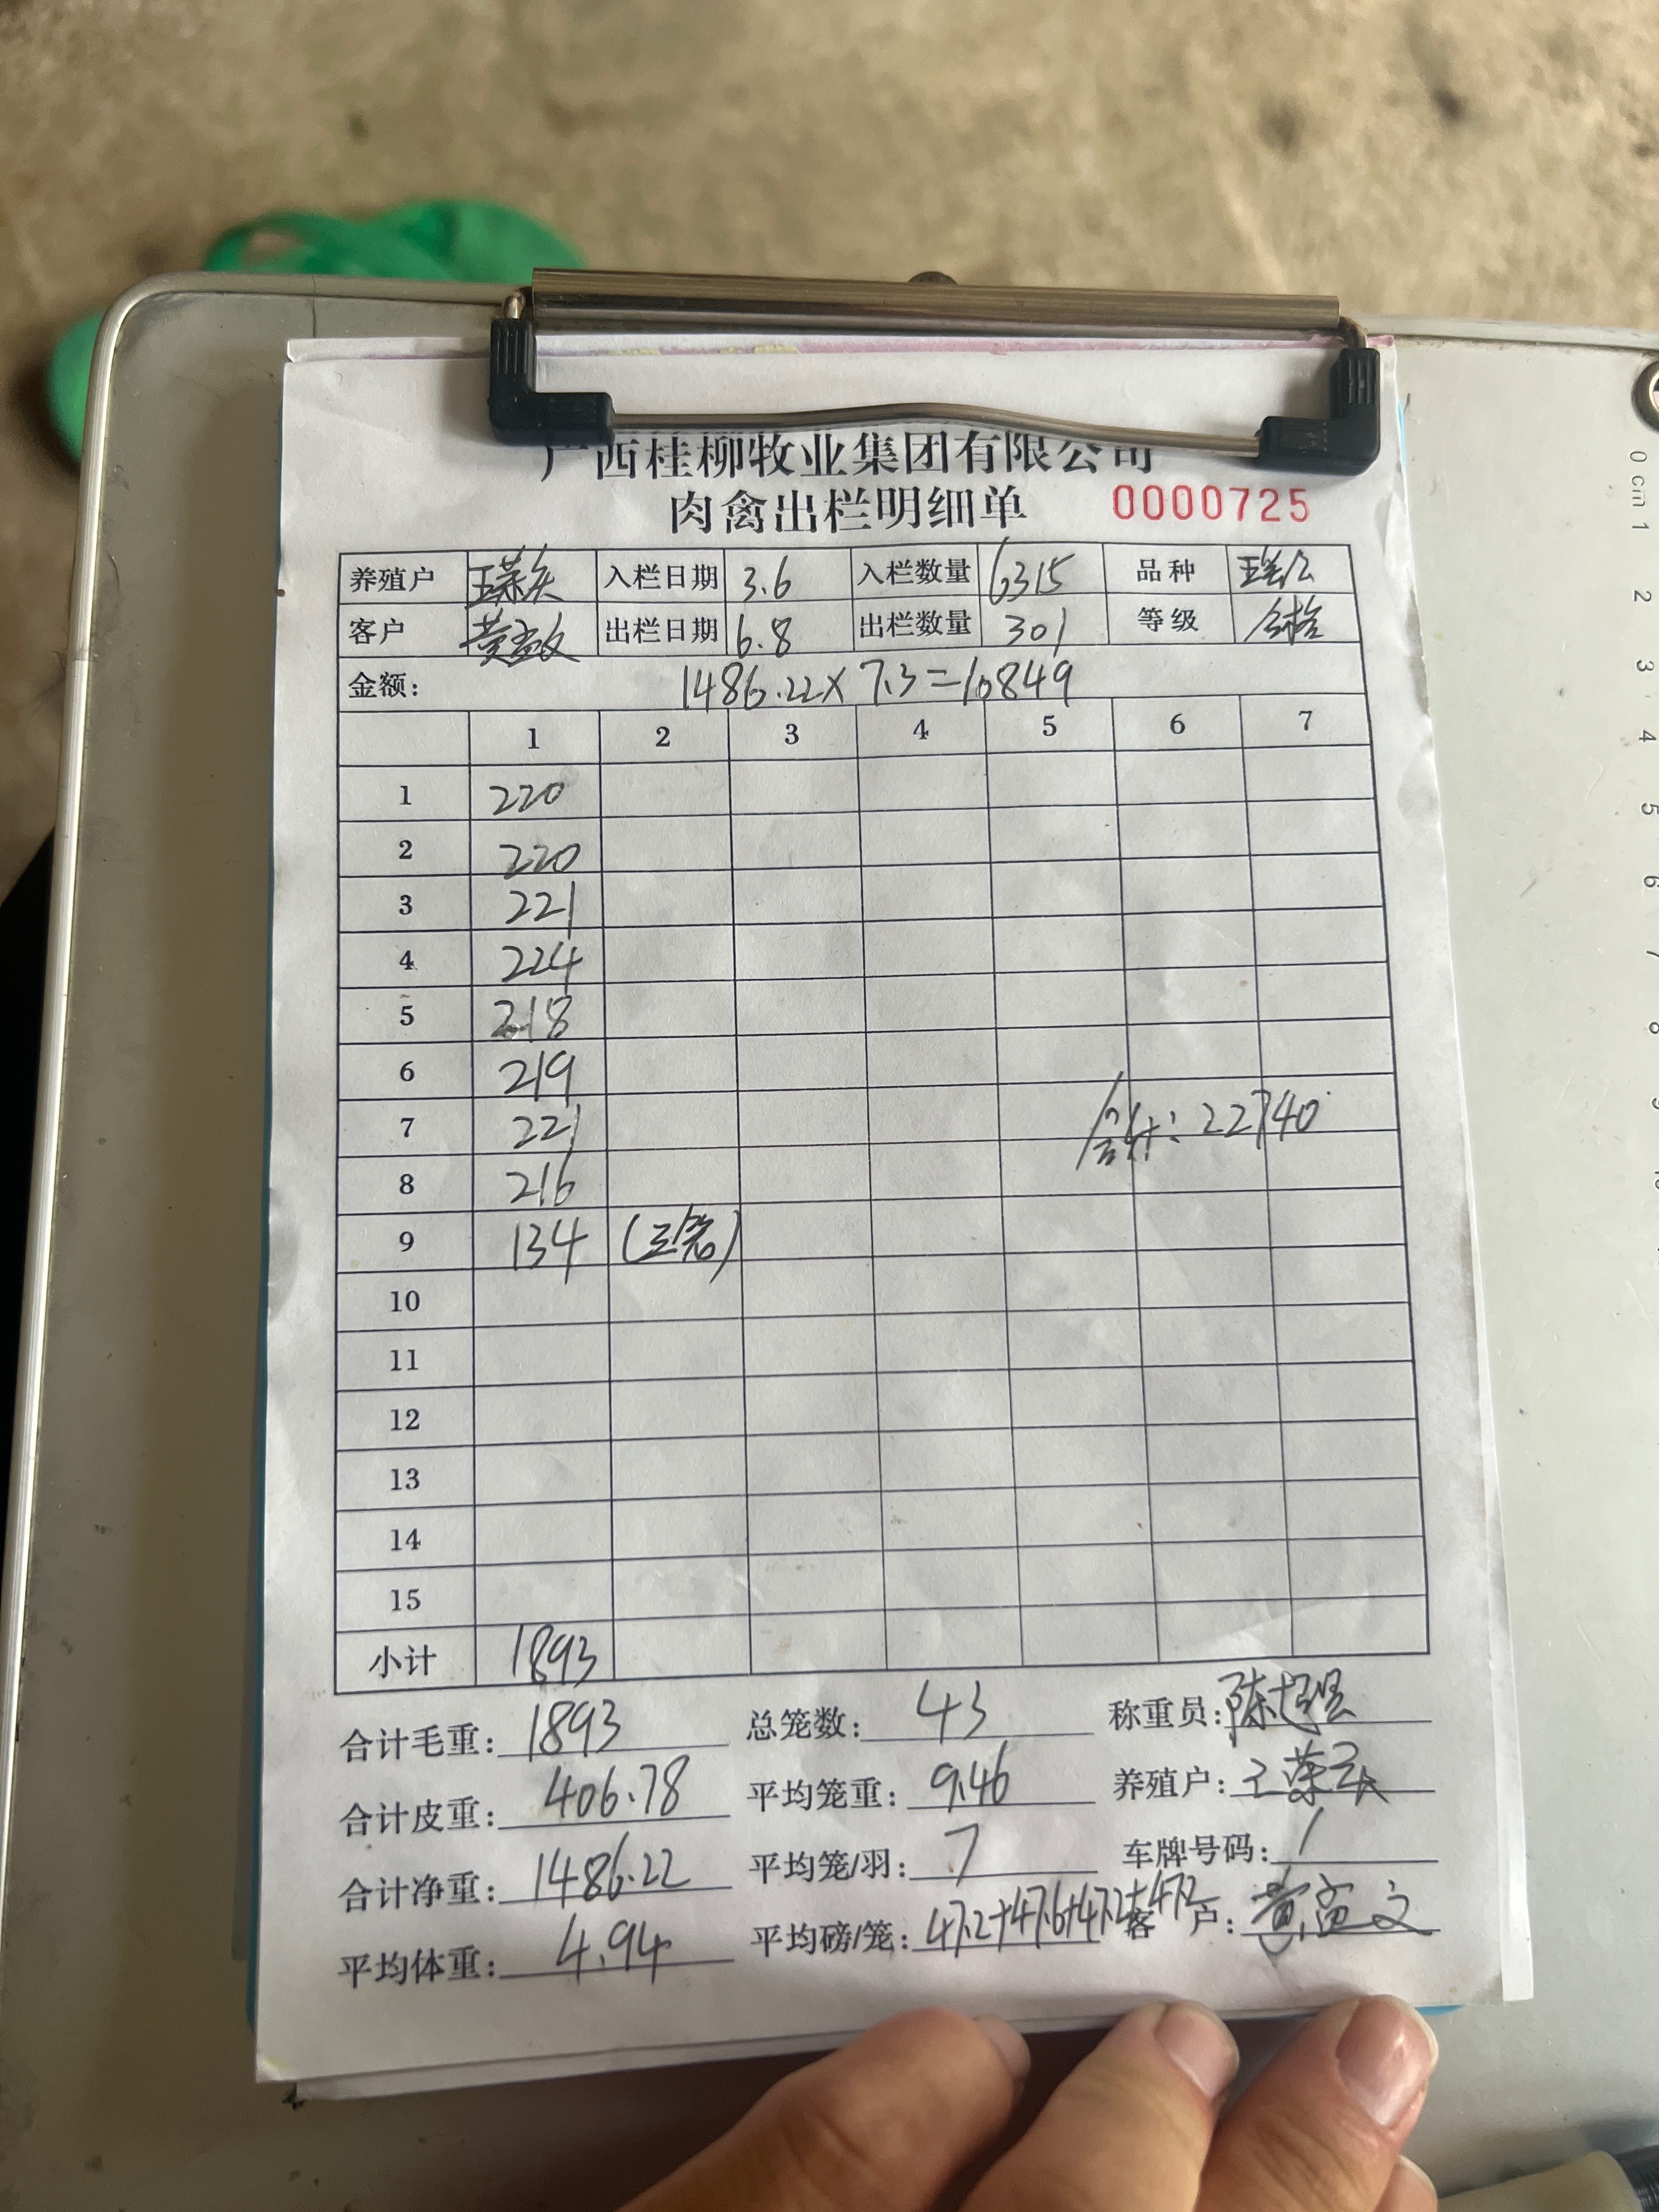 广西桂柳牧业集团有限公司
肉禽出栏明细单 0000725
养殖户 入栏日期 3.6 入栏数量 6315 品种
客户 黄孟文 出栏日期 6.8 出栏数量 301 等级 合格
金额: 1486.22×7.3=10849
1 2 3 4 5 6 7
1 220
2 220
3 221
4 224
5 218
6 219
7 221 合计:22740
8 216
9 134 (三笼)
10
11
12
13
14
15
小计 1893
合计毛重: 1893 总笼数: 43 称重员:
合计皮重: 406.78 平均笼重: 9.46 养殖户:
合计净重: 1486.22 平均笼/羽: 7 车牌号码: /
平均体重: 4.94 平均磅/笼: 47.2+47.6+47.2+47.2 客户: 黄孟文
0cm 1 2 3 4 5 6 7 8 9 10